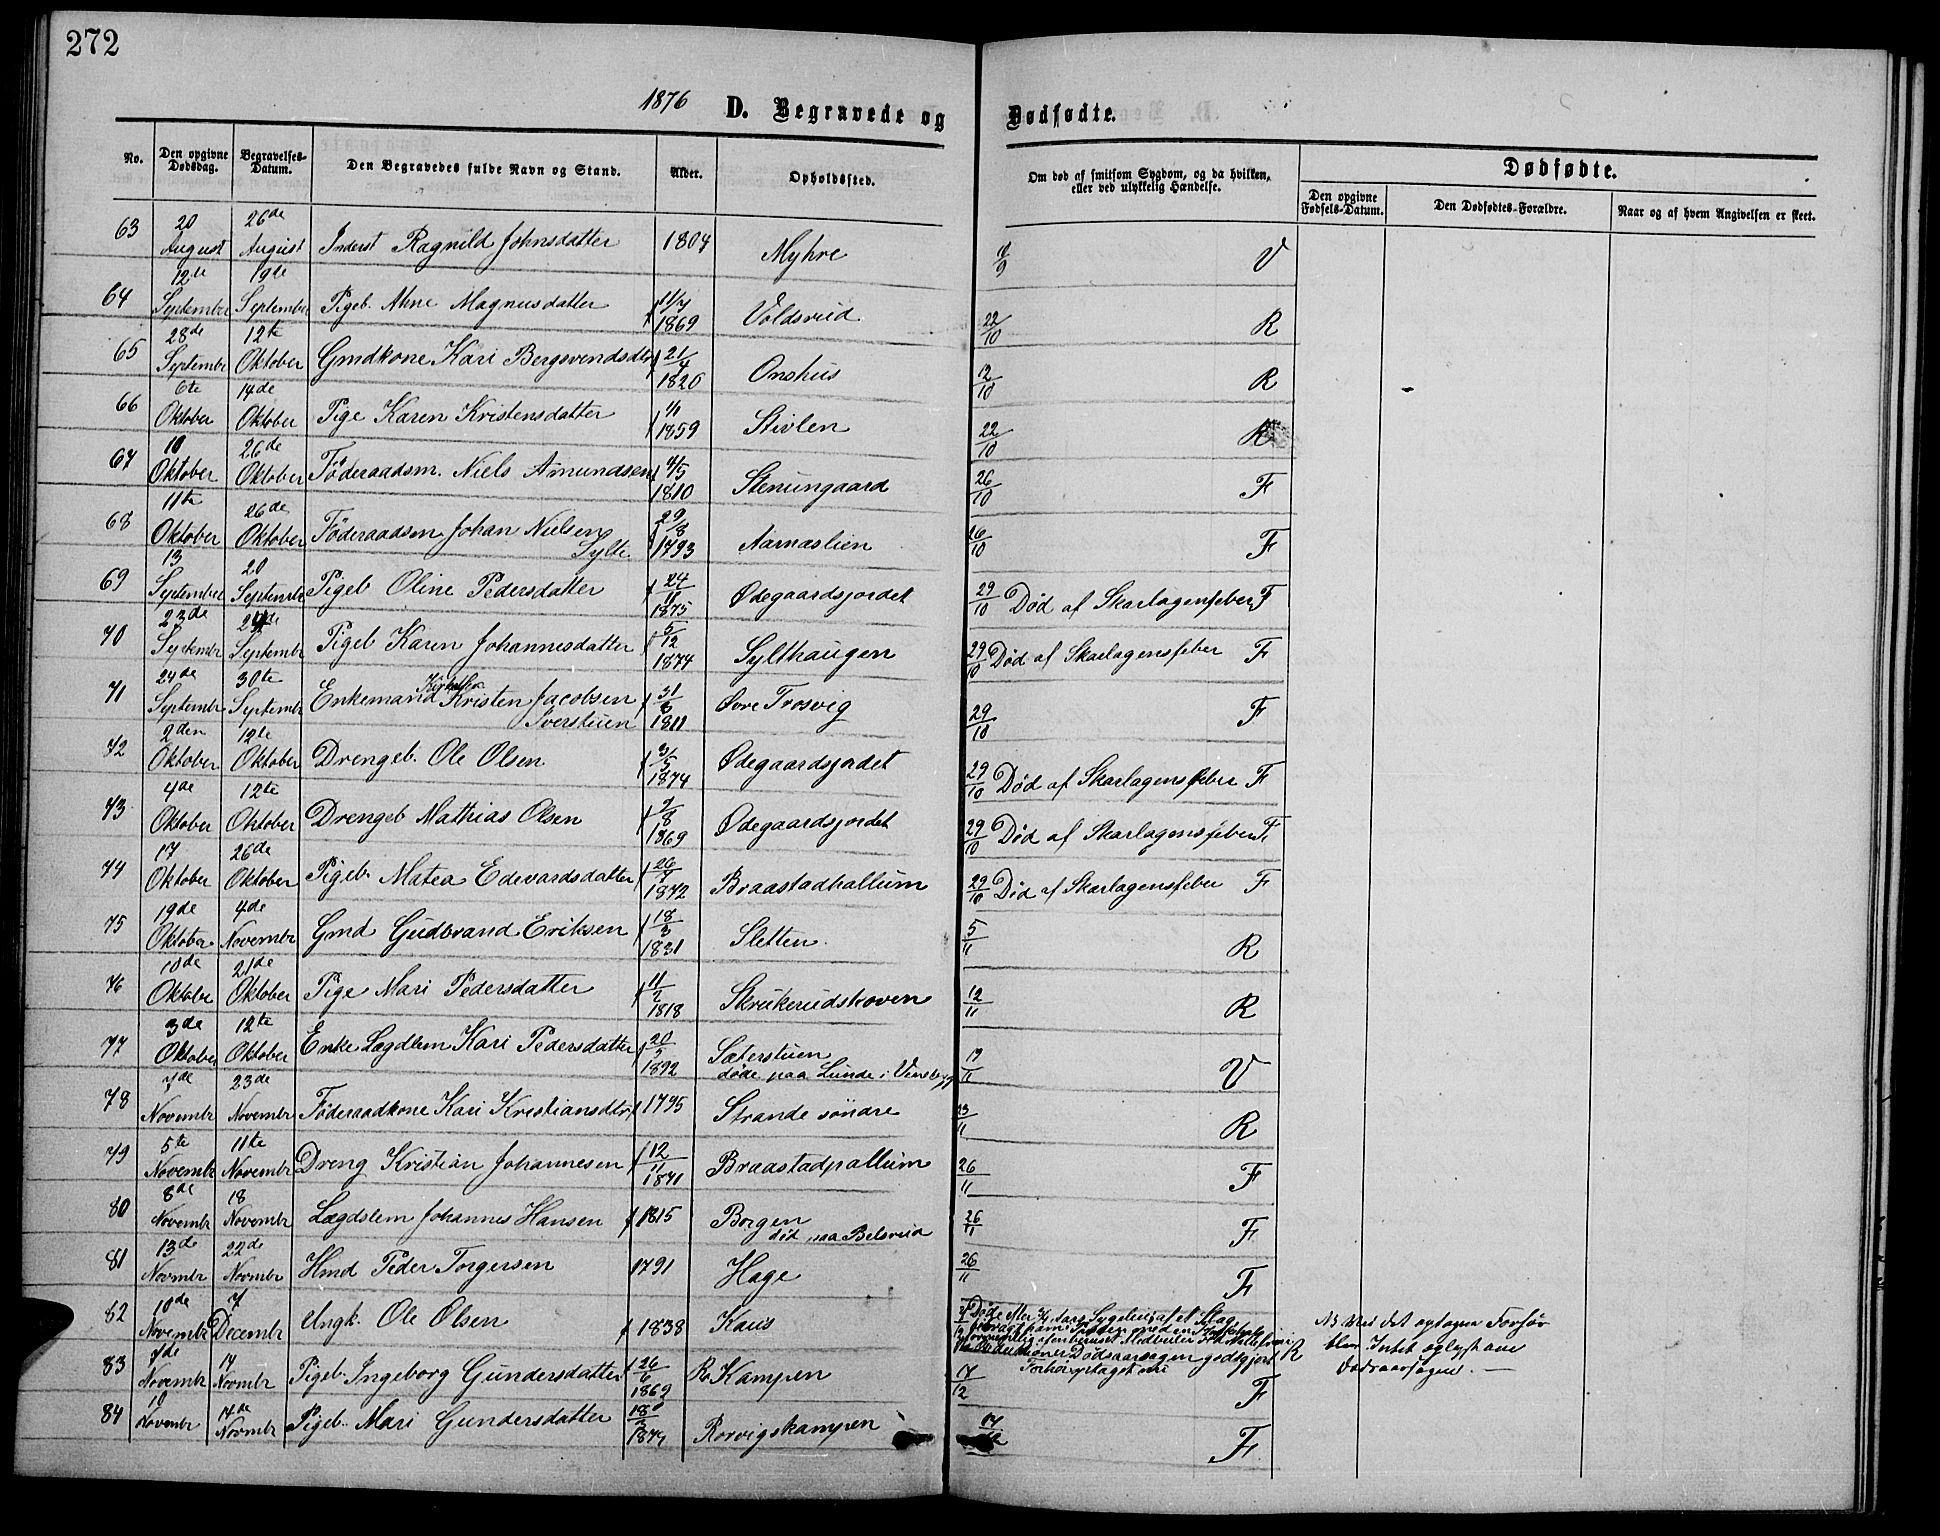 272
1876 D. Begravede og Dødfødte.
No. Den opgivne Dødsdag. Begravelses-Datum. Den Begravedes fulde Navn og Stand. Alder. Opholdssted. Om død af smitsom Sygdom, og da hvilken, eller ved ulykkelig Hændelse. Dødfødte.
Den opgivne Fødsels-Datum. Den Dødfødtes Forældre. Naar og af hvem Angivelsen er skeet.
63 20 August 26de August Inderst Ragnild Johnsdatter 1804 Myhre V
64 12te September 19de September Pigeb. Anne Magnusdatter 11/7 1869 Voldsrud 22/10 R
65 28de September 12te Oktober Gmdkone Kari Bergsvendsdtr 21/4 1826 Onshus 12/10 R
66 6te Oktober 14de Oktober Pige Karen Kristensdatter 1859 Stivlen 22/10 R
67 10 Oktober 26de Oktober Föderaadsm. Niels Amundsen 4/5 1810 Stenungaard 26/10 F
68 11te Oktober 26de Oktober Föderaadsm Johan Nielsen Sylte 29/8 1793 Aarnaslien 26/10 F
69 13 September 20 September Pigeb Oline Pedersdatter 24/11 1875 Ødegaardsjordet 29/10 Død af Skarlagensfeber F
70 23de Septembr Septembr Pigeb Karen Johannesdatter 5/12 1874 Sylthaugen 29/10 Død af Skarlagensfeber F
71 24de Septembr 30te Septembr Enkemand Kristen Jacobsen Sverstuen 31/8 1811 Øvre Trosvig 29/10 F
72 2den Oktober 12te Oktober Drengeb. Ole Olsen 3/5 1874 Ødegaardsjordet 29/10 Død af Skarlagensfeber F
73 4de Oktober 12te Oktober Drengeb Mathias Olsen 2/8 1869 Ødegaardsjordet 29/10 Død af Skarlagensfeber F
74 17 Oktober 26de Oktober Pigeb. Matea Edevardsdatter 26/7 1872 Braastadhallum 29/10 Død af Skarlagensfeber F
75 19de Oktober 4de Novembr Gmd Gudbrand Eriksen 18/3 1831 Sletten. 5/11 R
76 10de Oktober 21de Oktober Pige Mari Pedersdatter 11/2 1818 Skrukerudskoven 12/11 R
77 3de Oktober 12te Oktober Enke Lægdlem Kari Pedersdatter 20/5 Sæterstuen døde paa Lunde i 19/11 V
78 7de Novembr 23de Novembr Föderaadkone Kari Kristiansdtr 1795 Strande söndre 23/11 R
79 5te Novembr 11te Novembr Dreng Kristian Johannesen 12/11 1871 Braastadpallum 26/11 F
80 8de Novembr 18 Novembr Lægdslem Johannes Hansen 1815 Borgen død paa Belsrud 26/11 F
81 13de Novembr 22de Novembr Hmd Peder Torgersen 1791 Hage 26/11 F
82 10de Novembr 7 Decembr Ungk. Ole Olsen 1838 Kaus Døde efter Aars Sygeleie af et Slag Dødsaarsagen godtgjort R NB Ved det optagne Forhör blev Intet oplyst om Dødsaarsagen. —
83 7de Novembr 14 Novmbr Pigeb. Ingeborg Gundersdatter 26/6 1869 Kampen 17/12 Forhör optaget F
84 10 Novembr 14de Novmbr Pigeb. Mari Gundersdatter Rorvigskampen 17/12 F